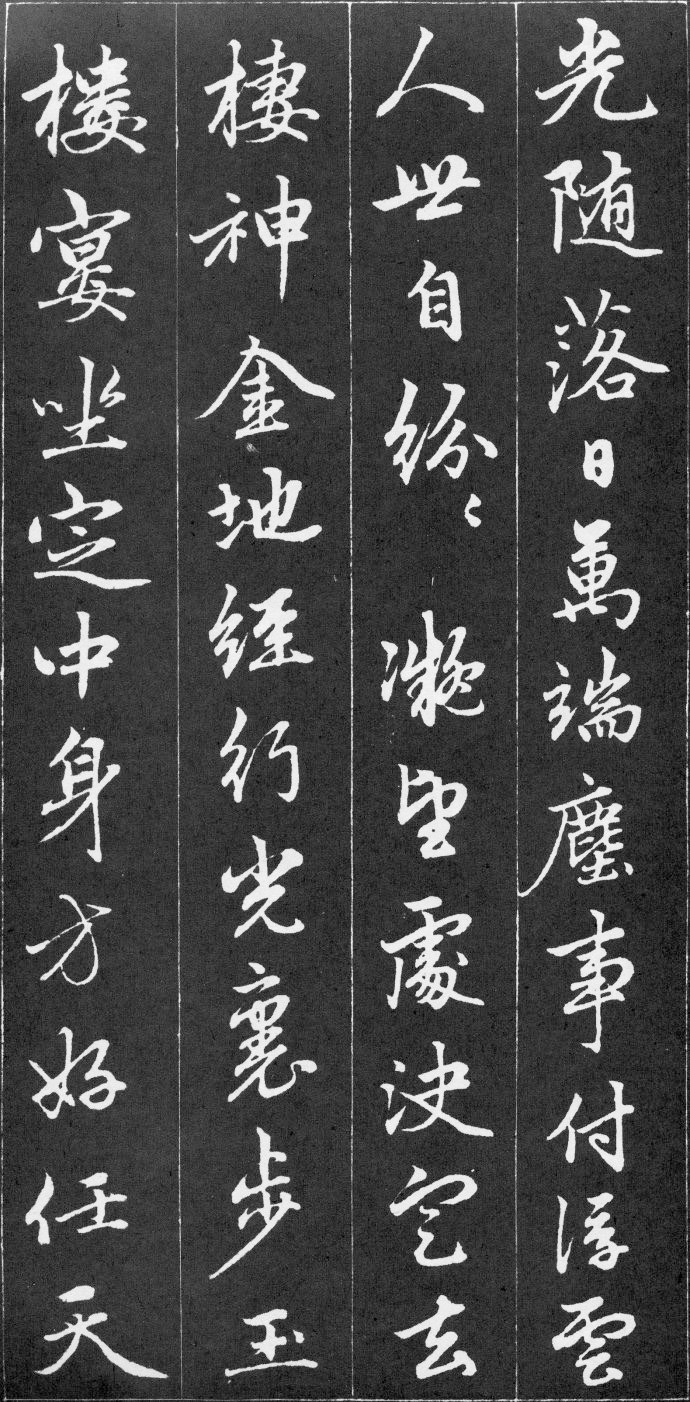 光随落日萬端塵事付浮雲
人世自紛〻凝望處决定去
棲神金地經行光裏步玉
樓宴坐定中身方好任天